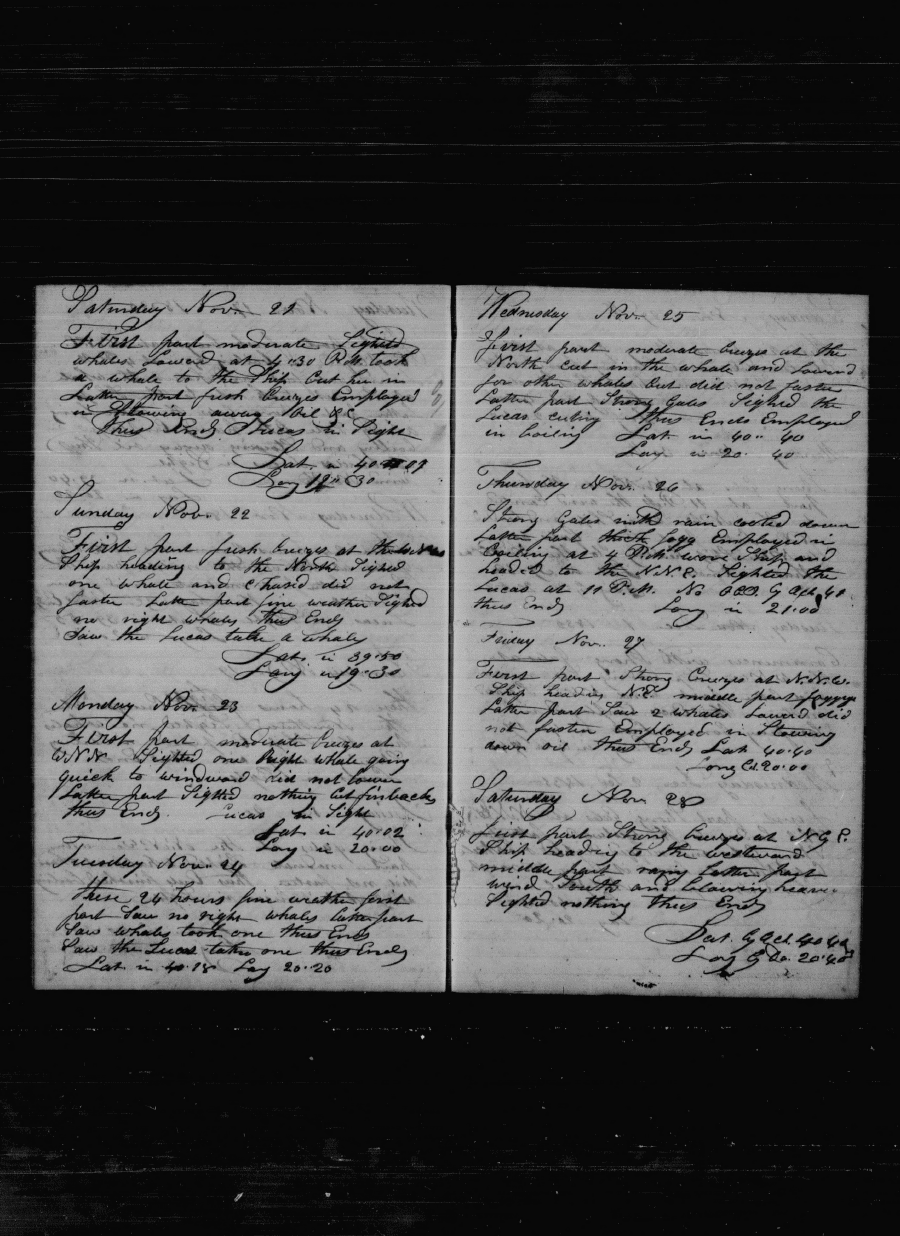 Saturday Nov. 21
First part moderate Sighted
whales Lowerd at 4.30 P.M. took
a whale to the Ship Cut her in
Latter part fresh breezes Employed
in Stowing away Oil &c
Thus Ends Lucas in Sight
Lat in 40 09
Long 19.30
Sunday Nov. 22
First part fresh breezes at the
Ship heading to the North Sighed
one whale and Chased did not
fasten Latter part fine weather Sighed
no right whales thus Ends
Saw the Lucas take a whale
Lat in 39.50
Long in 19.30
Monday Nov. 23
First part moderate breezes at
WNN Sighted one Right whale going
quick to windward did not lower
Latter part Sighted nothing but finbacks
thus Ends. Lucas in Sight
Lat in 40.02
Long in 20.00
Tuesday Nov. 24
these 24 hours fine weather first
part Saw no right whales latter part
Saw whales took one thus Ends
Saw the Lucas take one thus Ends
Lat in 40.18 Long 20.20
Wednesday Nov. 25
First part moderate breezes at the
North cut in the whale and Lowerd
for other whales but did not fasten
Latter part Strong Gales Sighed the
Lucas cuting thus Ends Employed
in boiling Lat in 40.. 40
Long in 20. 40
Thursday Nov. 26
Strong Gales with rain cooled down
Latter part thick fogg Employed in
Boiling at 4 P.M. wore Ship and
headed to the N.N.E. Sighted the
Lucas at 11 P.M. No OBS. By Act 40
thus Ends Long in 21.00
Friday Nov. 27
First part Strong breezes at N.N.W.
Ship heading N.E. middle part foggy
Latter part Saw 2 whales Lowerd did
not fasten Employed in Stowing
down oil thus Ends Lat. 40.40
Long 20.00
Saturday Nov 28
First part Strong breezes at
Ship heading to the westward
middle part rainy latter part
wind South and blowing heavi
Sighted nothing thus Ends
Lat. By Act. 40 40
Long By Do. 20.40